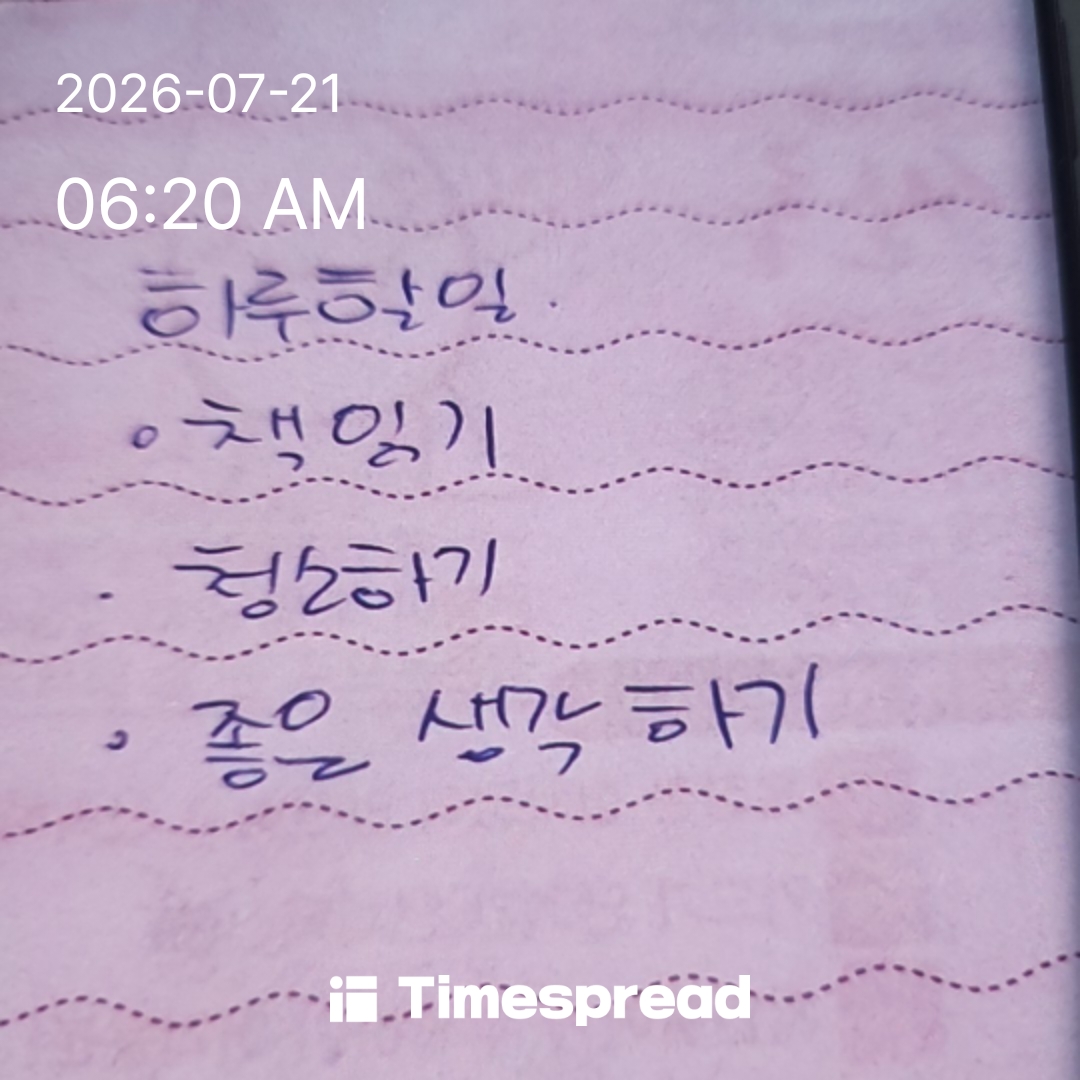 2026-07-21
06:20 AM
하루할일.
책읽기
청소하기
좋은 생각하기
Timespread